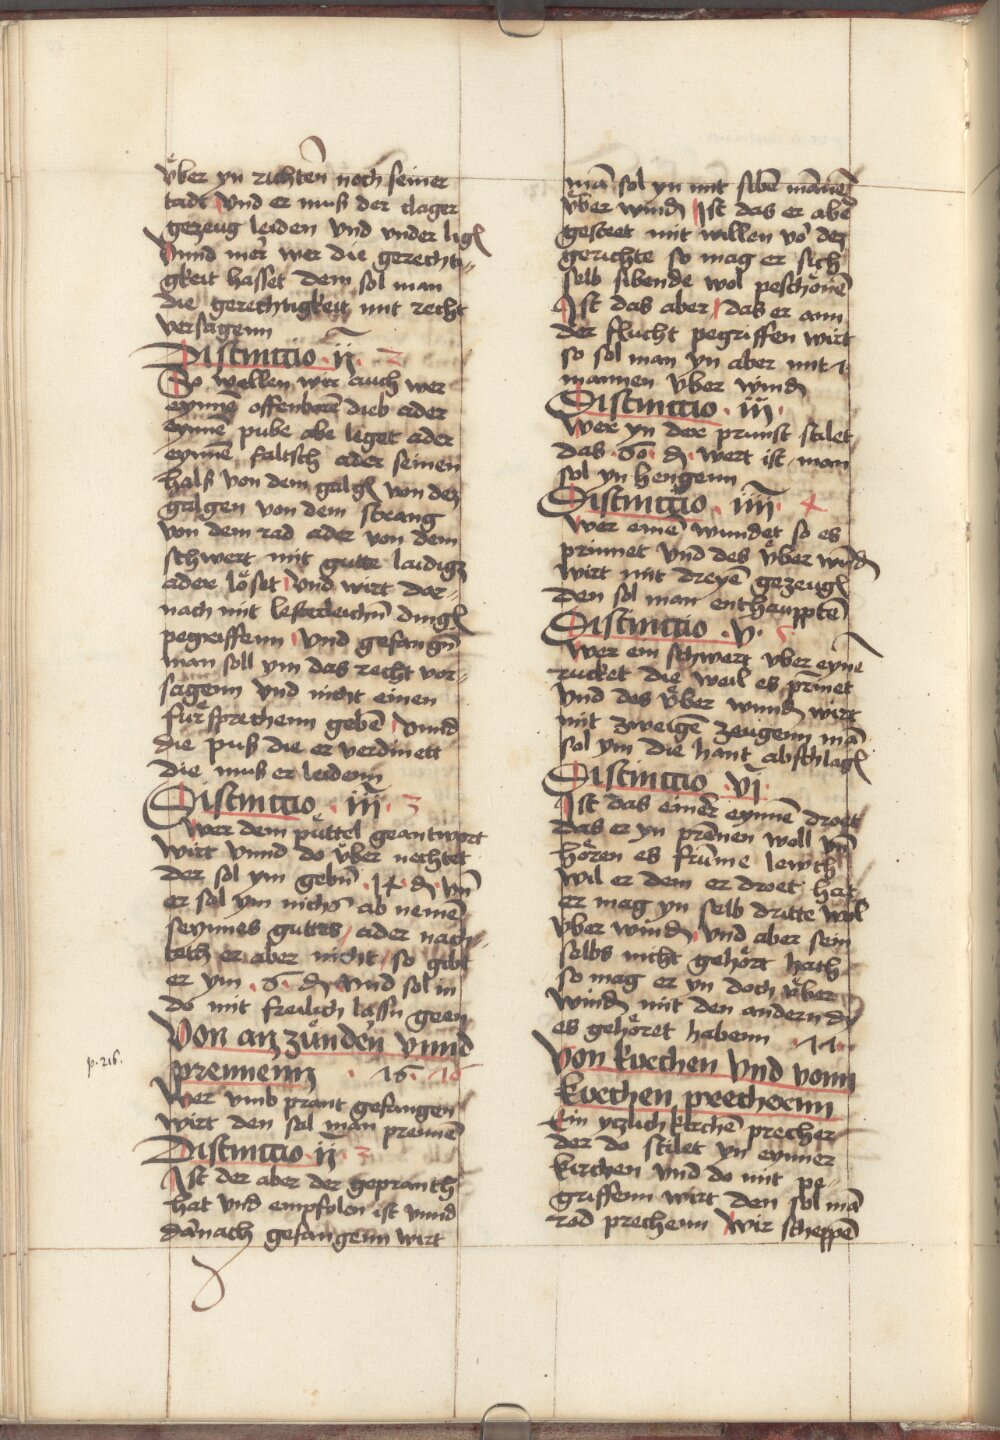 vͤber yn richten noch seiner
tadt Vnd er muß der clager
gezeug leiden Vnd vnder lig
Vnnd mer wer die gerechti⸗
gkeit hasset dem sol man
die gerechtigkeit mit recht
versagenn
Distinctio · ij · 2
So wellen wir auch wer
eynnē offenbarē dieb ader
eynnē pube abe leget ader
eynnē faltsch ader seinen
halß von dem galgē von der
galgen von dem strang
von dem rad ader von dem
schwert mit gutte ladigz
ader loͤset Vnd wirt dar⸗
nach mit lesterleichn̄ dingē
pegriffenn Vnd gefangn̄
man soll ym das recht vor⸗
sagenn vnd nicht einen
fuͤrsprechenn gebē vnnd
die puß die er verdinett
die muß er leidenn
Distinctio · iij · 3
Wer dem puͤttel geantwort
wirt vnnd do vͤber nechtet
der sol ym gebn̄ · 14 · d vn̄
er sol ym nichs ab nemē
seynnes guttes ader nach⸗
tech er aber nicht so gibt
er ym · 6 · d Vnd sol in
do mit freilich lassn̄ geen
Von anzuͤnden vnnd
prennenn · 16 · 16
p. 216.
Wer vmb prant gefangen
wirt den sal man prennē
Distinctio · ij · 2
Ist der aber der gepranth
hat vnd empfolen ist vnnd
darnach gefangenn wirt
mā sol yn mit sibē mānē
vͤber windn̄ Ist das er aber
gesteet mit willen vor der
gerichte so mag er sich
selb sibende wol peschonē
Ist das aber das er ann
der flucht pegriffen wirt
so sol man yn aber mit 1
mannen vͤber windn̄
Distinctio · iij ·
Wer yn der prunst stilet
das · 60 · d wert ist man
sol yn hengenn
Distinctio · iiij · 4
Wer einē wundet so es
prinnet Vnd des vͤber wūdn̄
wirt mit dreyē gezeugē
den sol man enthaupptē
Distinctio · v · 5
Wer ein schwert vber eynē
rucket die weil es prīnet
Vnd des vͤber wundn̄ wirt
mit zweigē zeugenn mā
sol ym die hant abschlagē
Distinctio · vj ·
Ist das einer eynnē droet
das er yn prēnen woll vn̄
hoͤren es frūme lewth
wil er dem er droet hat
er mag yn selb dritte wol
vͤber windn̄ Vnd aber sein
selbs nicht gehoͤrt hath
so mag er yn doch vͤber
windn̄ mit den andern dy
es gehoͤret habenn · 11 ·
Von kirchen Vnd vonn
kirchen precherenn
Ein yczlich kirchē precher
der do stilet yn eynner
kirchen vnd do mit pe⸗
griffenn wirt den sol mā
rad prechenn Wir scheppē